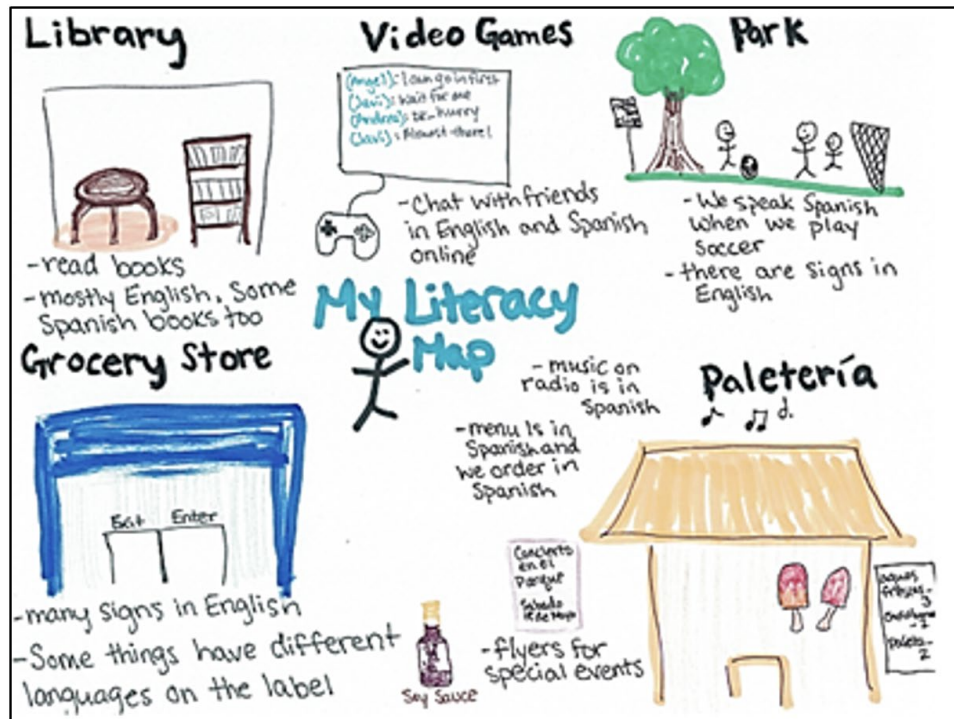 Library
Video Games
Park
(Angel): I can go in first
(Javi): Wait for me
(Andrea): ok.. hurry
(Javi): Almost there!
-read books
-mostly English, Some
Spanish books too
-Chat with friends
in English and Spanish
online
-We speak Spanish
when we play
Soccer
-there are signs in
English
My Literacy
Map
Grocery Store
Exit Enter
-many signs in English
-Some things have different
languages on the label
Soy Sauce
Paletería
-music on
radio is in
Spanish
-menu is in
Spanish and
we order in
Spanish
Concierto
en el
Parque
Sabado
de Mayo
-flyers for
special events
aguas
frescas-
3
paleta-
2